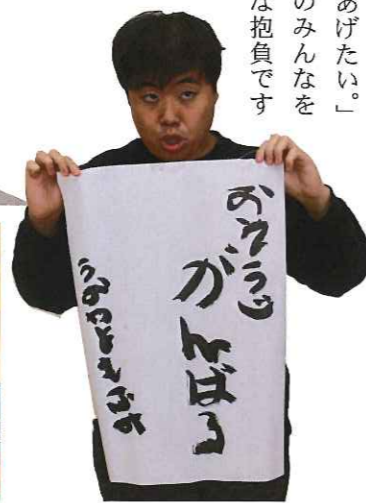 あげたい。」
のみんなを
な抱負です
おそうじ
がんばる